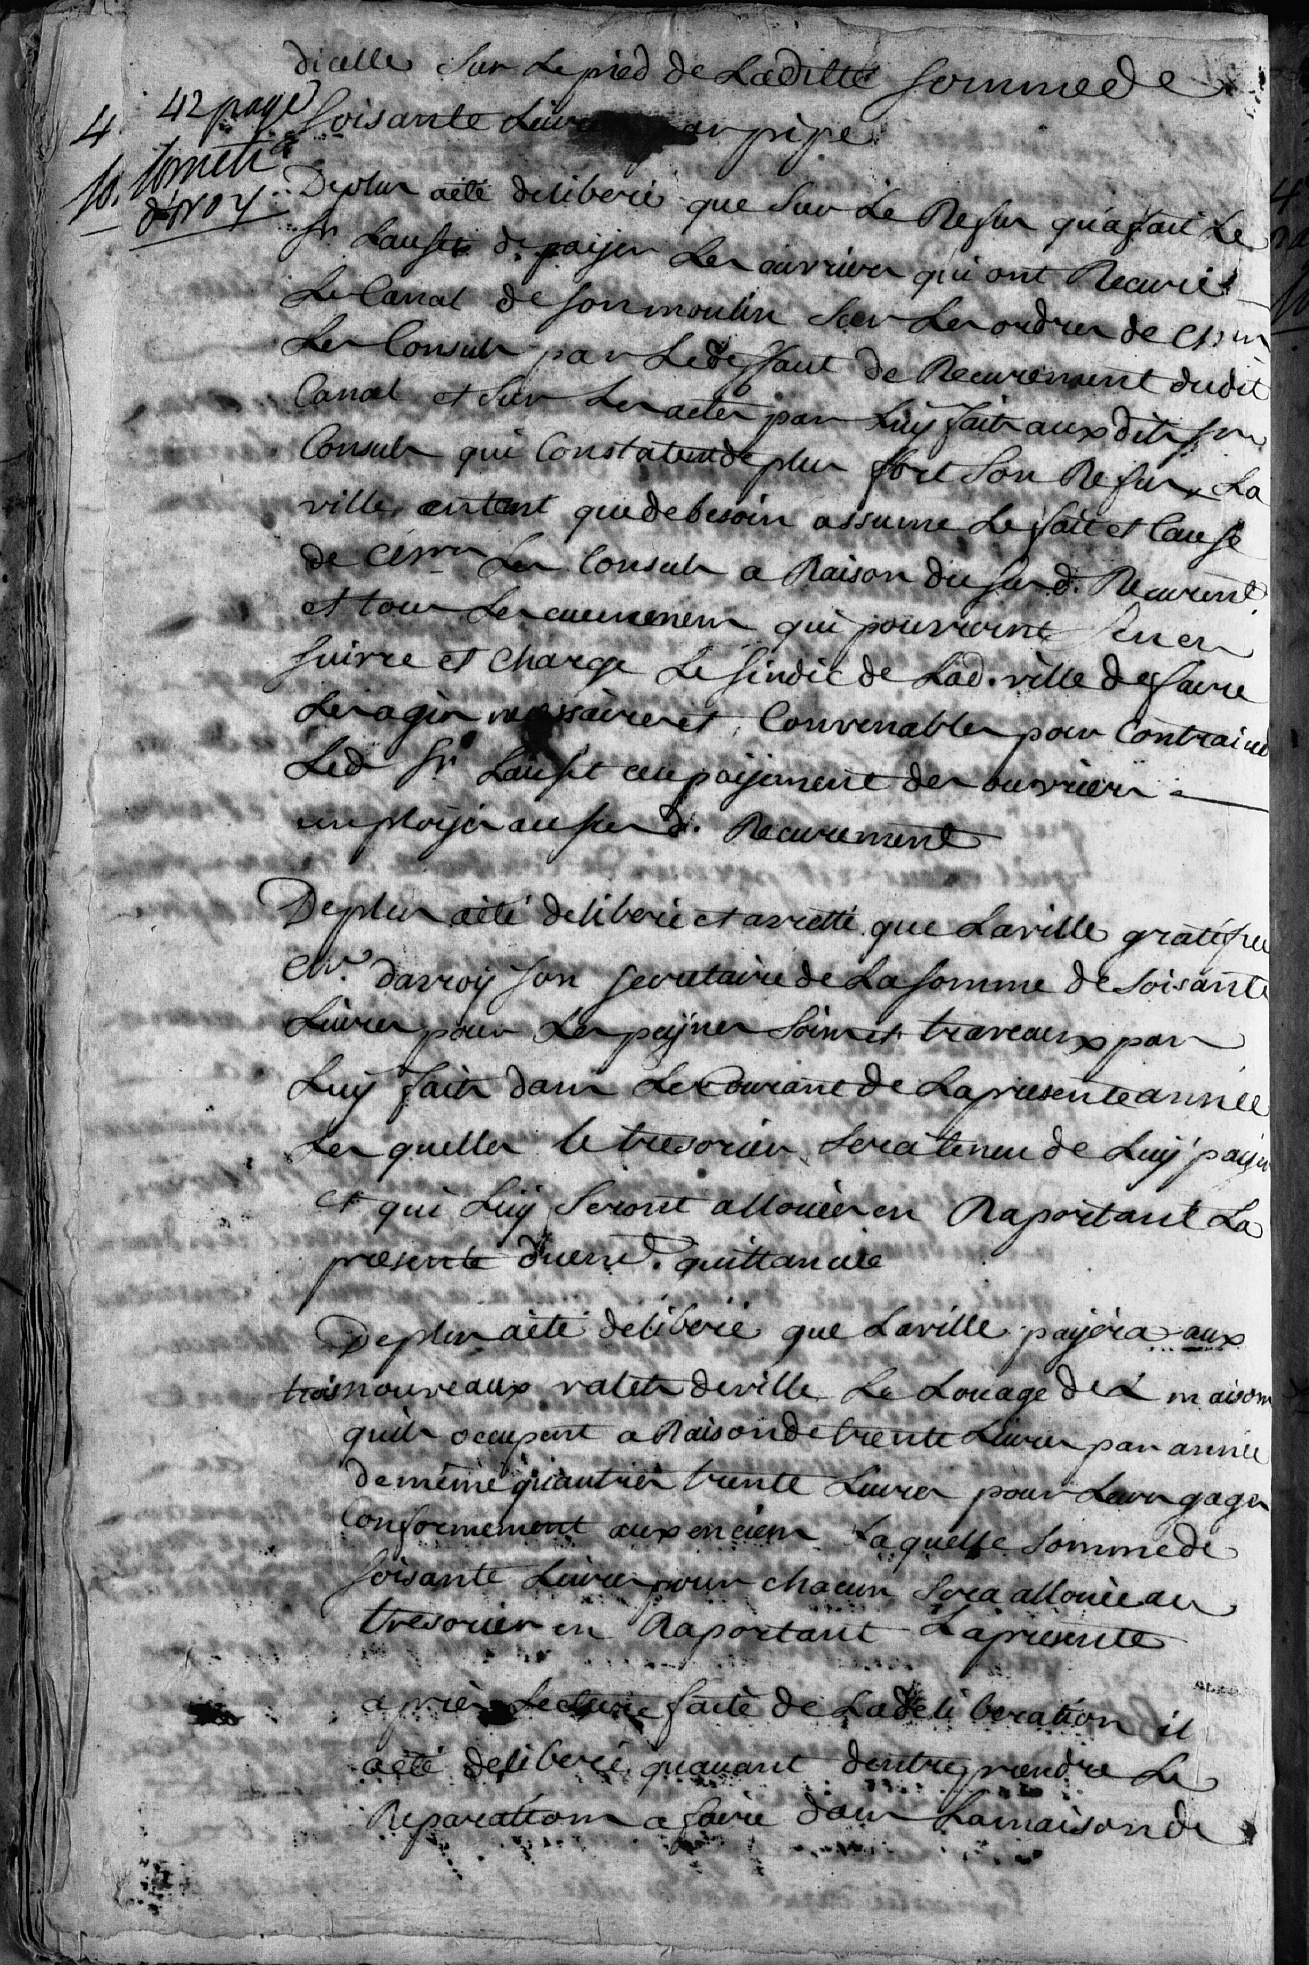 dicelle Sur Le pied de Laditte sommede
4 42 page soisante Livres par pipe
De plus aété deliberé que Sur Le Refus qua fait Le
Sr Lauset de paÿer Les ouvriers qui ont Recuré
Le Canal de son moulin Sur Les ordres de
Les Consuls par Le deffaut de Recurement dudit
Canal et Sur Les actes par Luy faits aux dits Srs
Consuls qui Constatent de plus fort Son Refus, La
ville entant que de besoin assume Le fait et Cause
de Les Consuls a Raison du sus d. Recuremt.
et tous Les evenemens qui pourroint Sen en
suivre et charge Le sindic de Lad. ville de faire
Les agirs nessaires et Convenables pour Contraindre
Led Sr Lauset au paÿement des ouvriers
emploÿés au sus d. Recurement
De plus aété deliberé et arretté que Laville gratifiee
Mr. darroÿ son secretaire de La somme de soisante
Livres pour Les peÿnes Soins et traveaux par
Luÿ faits dans Le Courant de La presente année
Les quelles le tresorier Sera tenu de Luÿ paÿer
et qui Luÿ Seront allouées en Raportant La
presente duem.t quittancée
De plus aété deliberé que Laville paÿéra aux
trois nouveaux valets deville Le Louage des maisons
quils occupent a Raison de trente Livres par année
de même quautres trente Livres pour Leurs gages
Conformement aux enciens La quelle Somme de
soisante Livres pour chacun Sera allouée au
tresorier en Raportant La presente
apries Lecture faite de La deliberation il
aété deliberé quavant dentreprendre Les
Reparations a faire dans La maison de